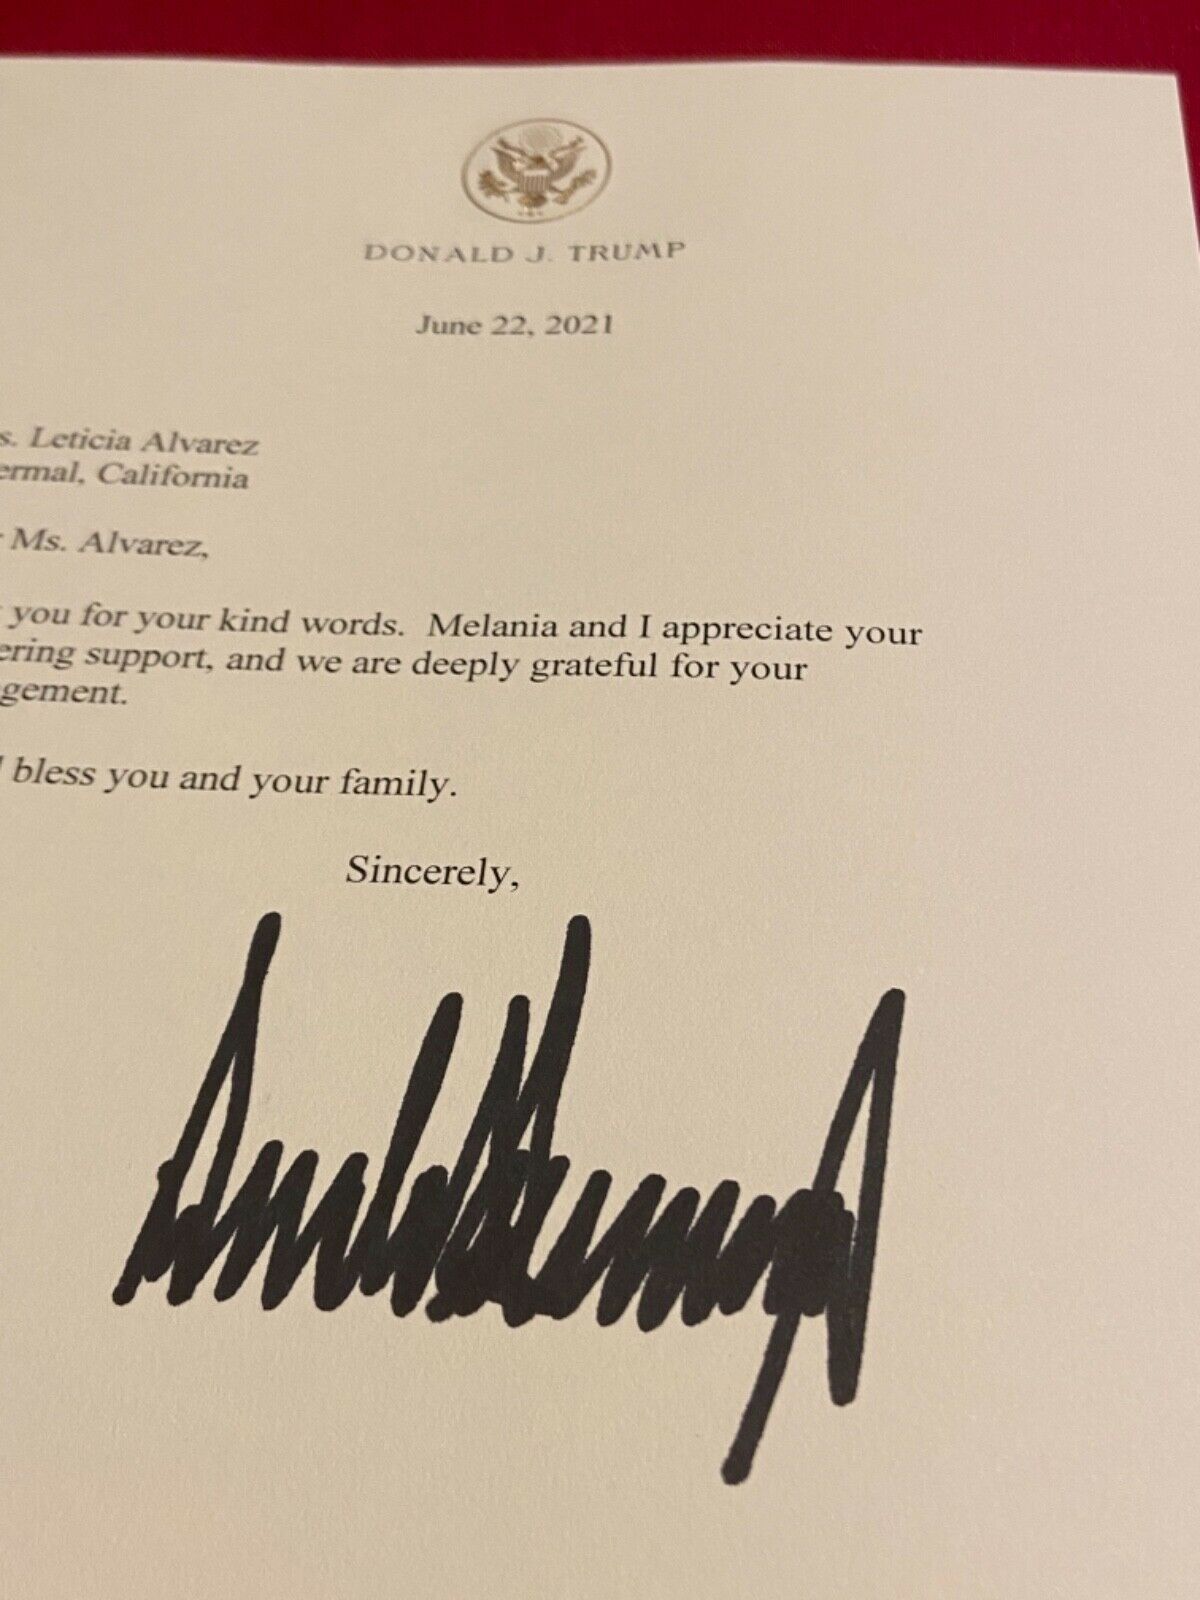 DONALD J. TRUMP
June 22, 2021
s. Leticia Alvarez
ermal, California
Ms. Alvarez,
you for your kind words. Melania and I appreciate your
ering support, and we are deeply grateful for your
gement.
bless you and your family.
Sincerely,